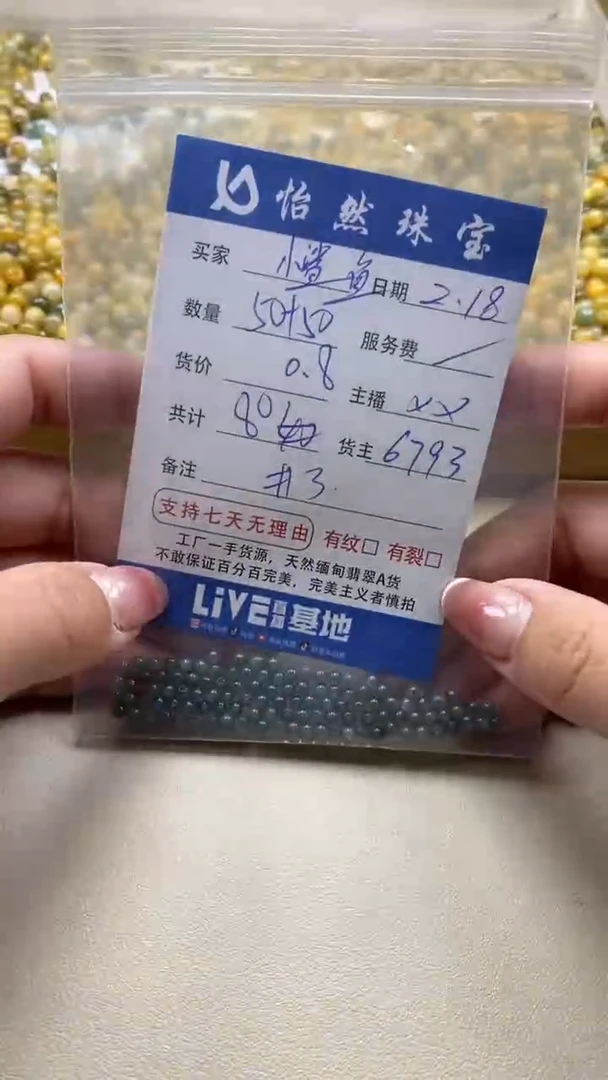 怡然珠宝
买家 小鲨鱼 日期 2.18
数量 50+50 服务费 /
货价 0.8 主播 xx
共计 80 货主 6793
备注 #3.
支持七天无理由 有纹□ 有裂□
工厂一手货源，天然缅甸翡翠A货
不敢保证百分百完美，完美主义者慎拍
LiVE 基地